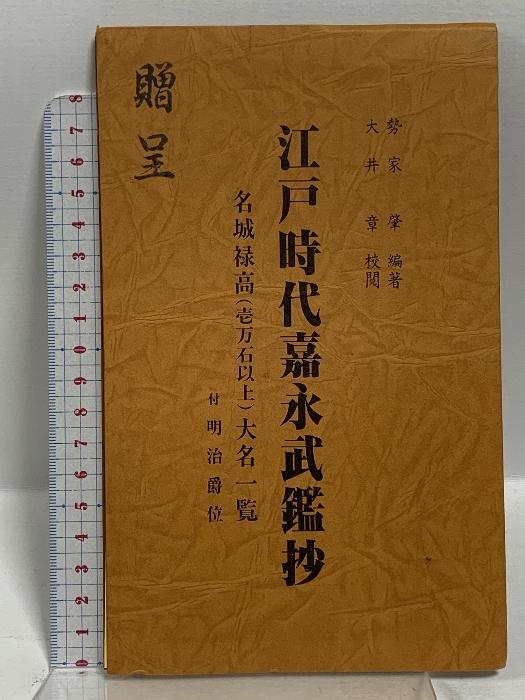 勢家肇編著
大井章校閲
江戸時代嘉永武鑑抄
名城禄高(壱万石以上)大名一覧
付明治爵位
贈呈
0 1 2 3 4 5 6 7 8 9 0 1 2 3 4 5 6 7 8